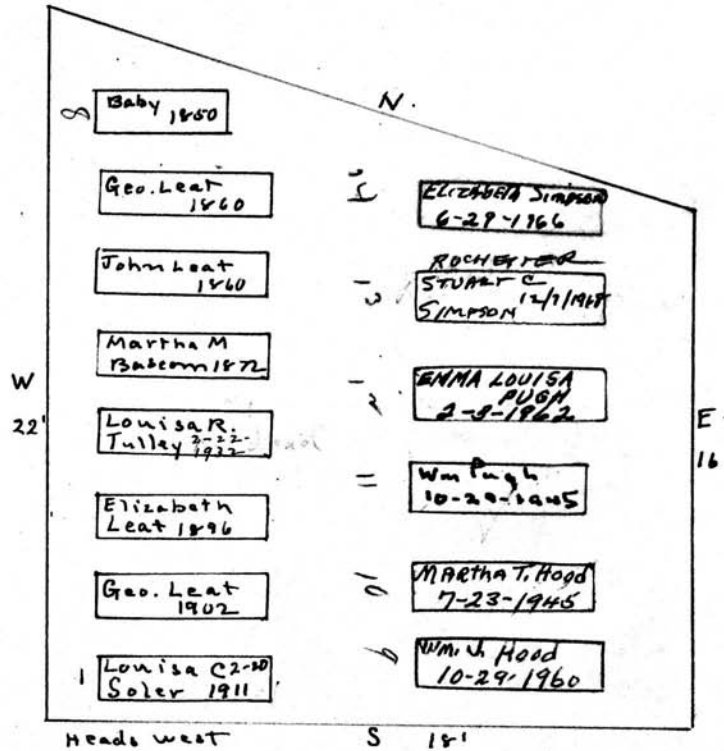 N.
8
Baby
1850
Geo. Leat
1860
John Leat
1860
Martha M
Bascom 1872
W
22'
Louisa R.
Tulley 2-22-
1922
Elizabeth
Leat 1896
Geo. Leat
1902
1
Louisa C 2-20
Soler 1911
14
ELIZABETH SIMPSON
6-29-1966
ROCHESTER
13
STUART C
12/7/1968
SIMPSON
12
EMMA LOUISA
PUGH
2-8-1962
11
Wm Pugh
10-29-1945
10
MARTHA T. Hood
7-23-1945
9
Wm. V. Hood
10-29-1960
E
16
Heads West
S
18'